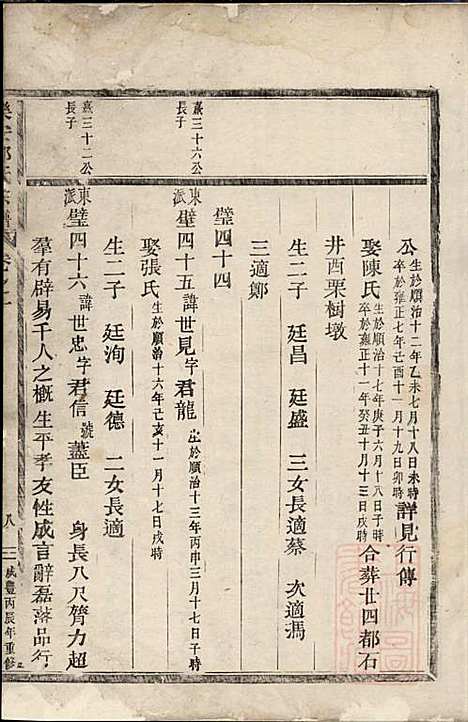 公生於順治十二年乙未七月十八日未時卒於雍正七年己酉十一月十九日卯時詳見行傳
娶陳氏生於順治十七年庚子六月十八日子時卒於雍正十一年癸丑十月十三日戌時合葬廿四都石
井西栗樹墩
生二子 廷昌 廷盛 三女長適蔡 次適馮
三適鄭
璧四十四
熹三十六公
長子
東派璧四十五諱世見字君龍生於順治十三年丙申三月十七日子時
娶張氏生於順治十六年己亥十一月十七日戌時
生二子 廷洵 廷德 二女長適
熹三十二公
長子
東派璧四十六諱世忠字君信號藎臣 身長八尺膂力超
羣有辟易千人之概生平孝友性成言辭磊落品行
氏宗譜 卷之
八
咸豐丙辰年重修